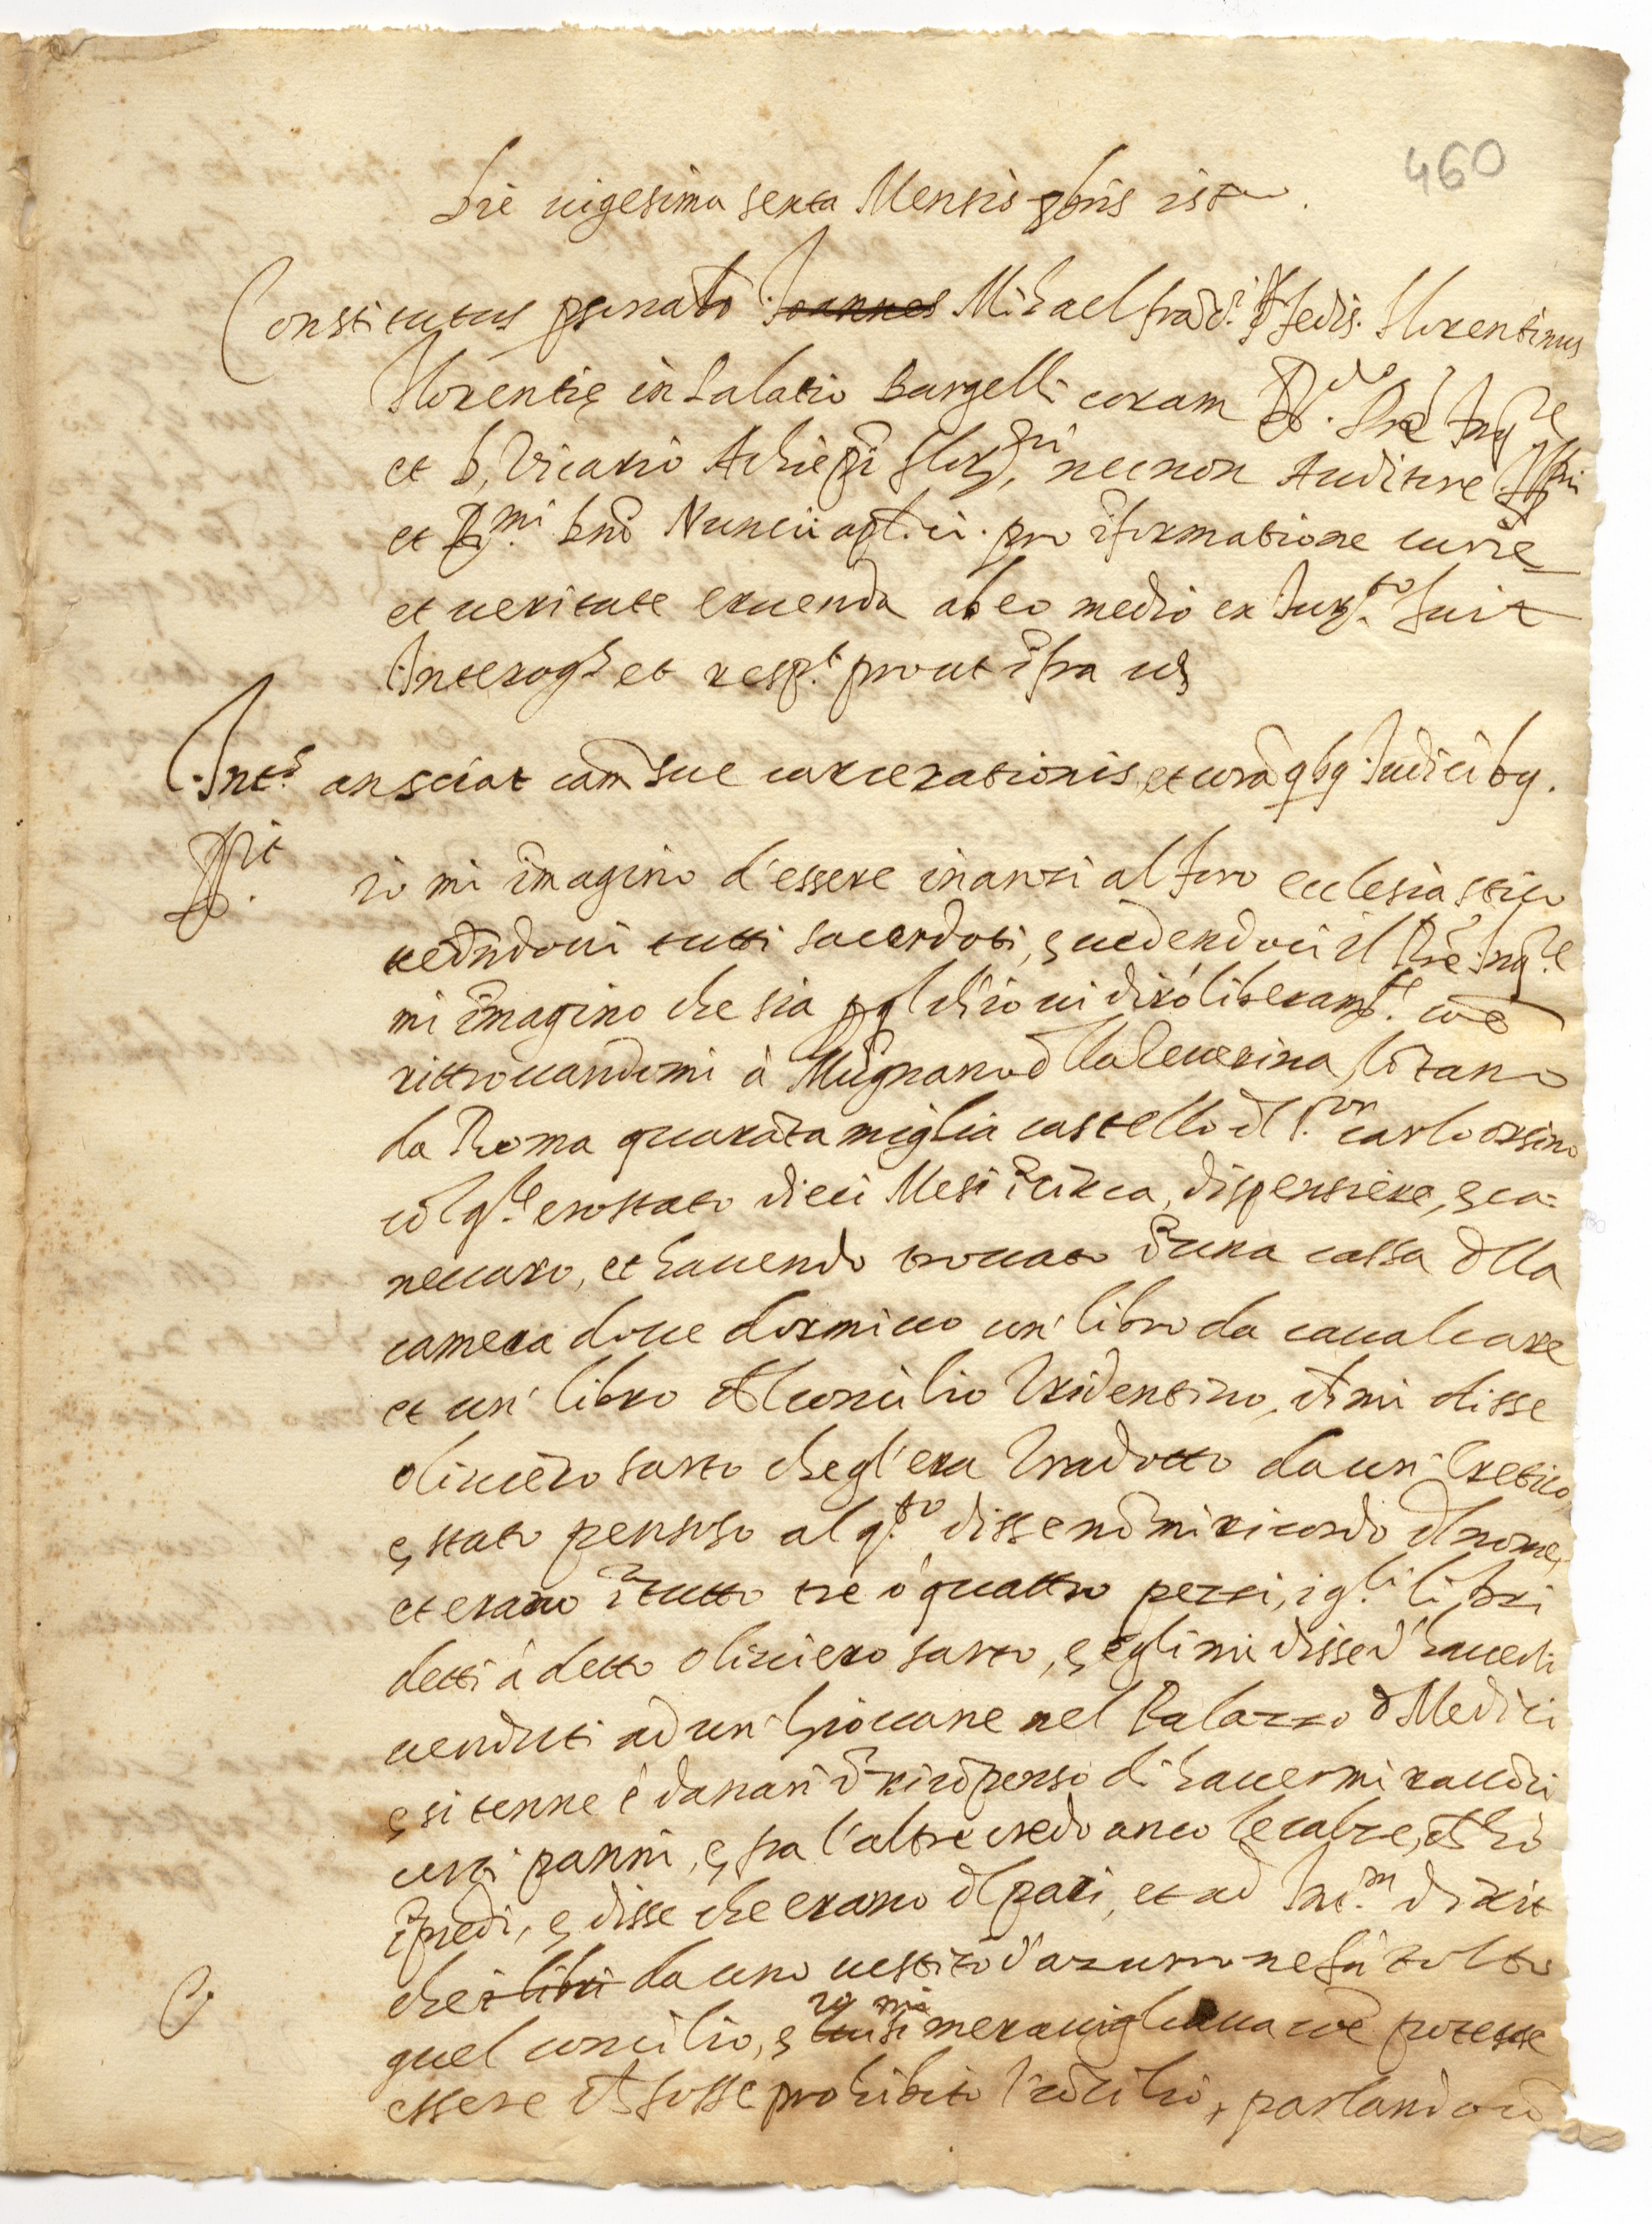 460
Die uigesima sexta Mensis 9bris
Constitutus psonalr Joannes Michael Florentinus
Florentię in Palatio Bargelli coram
et D. Vicario necnon Auditore
et R.mi Dni Nuncii aplici. pro iformatione curie
et ueritate eruenda ab eo medio ex Jurto fuit
Interogs et respt prout ifra uz
Ints an sciat cam sue carcerationis, et corā qbq Judicibq.
Rit io mi imagino d'essere inanzi al foro ecclesiastico
uedndoui tutti sacerdoti, e uedendoci il Pre Inqre
mi imagino che sia pql ch'io ui dirò liberamte. coe
ritrouandomi à Mugnano dlla Teuerina, lōtano
da Roma quarāta miglia castello dl S.or Carlo orsino
cōl qle ero stato dieci Mesi icirca, dispensiere, e ca=
neuaro, et hauendo trouato i una cassa dlla
camera doue dormiuo un' libro da caualcare
et un' libro dl Concilio Tridentino, ch mi disse
oliuiero sarto che gl'era tradotto da un' Eretico,
e stato sospeso al qto disse nō mi ricordo dl nome,
et erano i tutto tre ò quattro pezzi, i qli libri
detti à detto oliuiero sarto, e egli mi disse d' hauerli
uenduti ad un' Giouane nel Palazzo d Medici
e si tenne é danari i ricōpenso di hauermi
certi panni, e fra l'altre credo anco le calze, ch hò
i piedi, e disse che erano dl pari, et ad Int.m dixit
che i libri da uno uestito d'azurro ne fu tolto
quel concilio, e io mi merauigliaua coe potesse
essere ch fosse prohibito il cōcilio, parlando cō